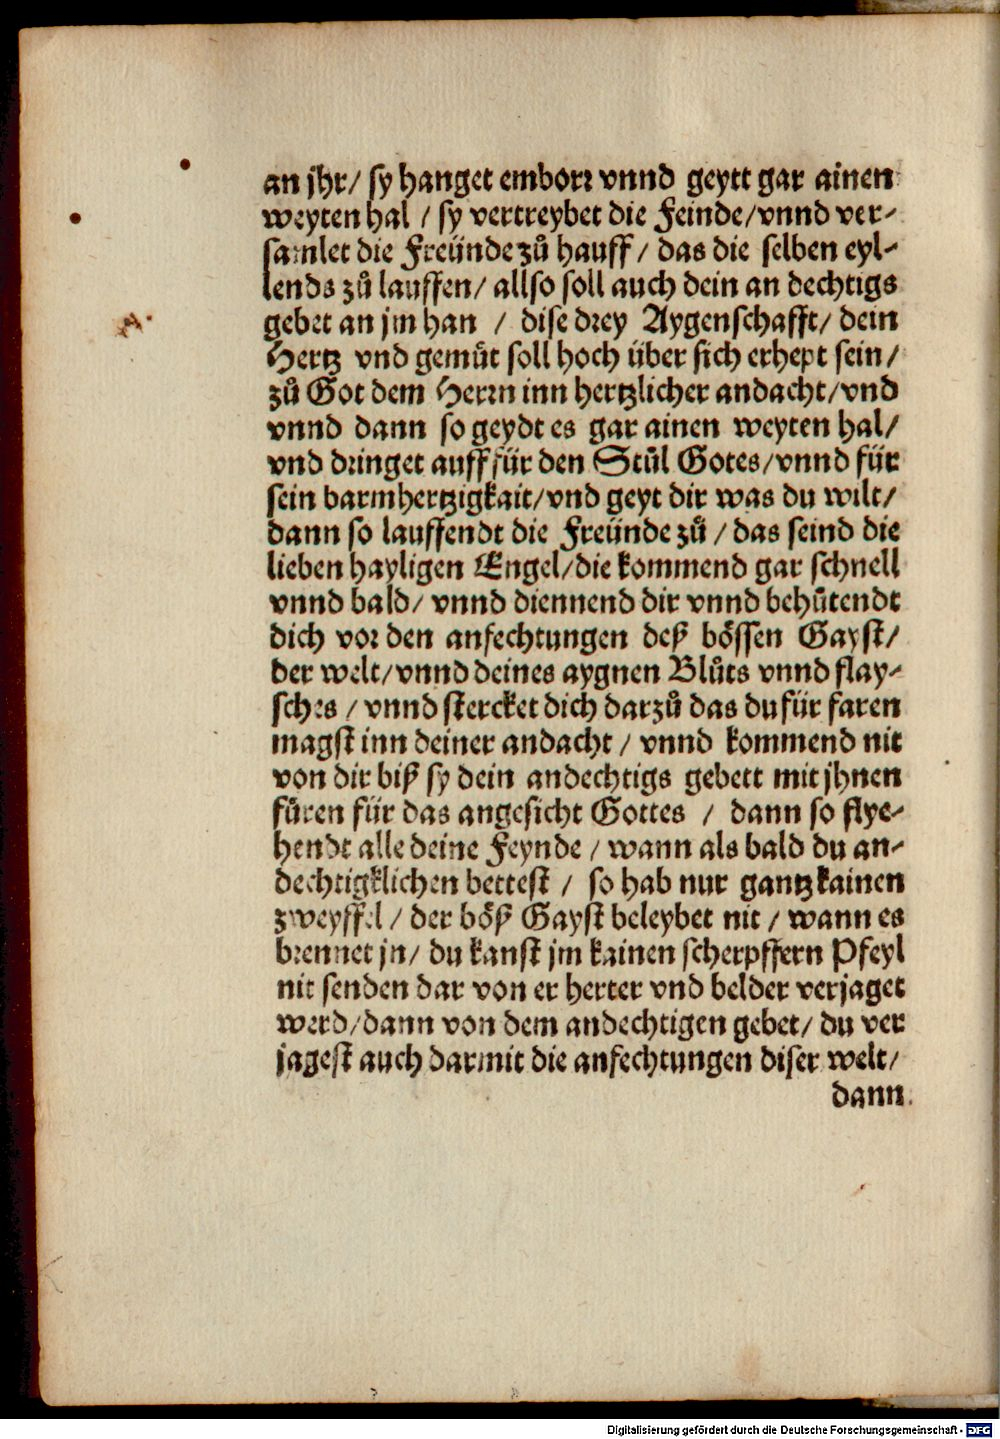 an jhr/ sy hanget emborr vnnd geytt gar ainen
weyten hal / sy vertreybet die Feinde/vnnd ver-
samlet die Freünde zů hauff/ das die selben eyl-
lends zů lauffen/ allso soll auch dein an dechtigs
gebet an jm han / dise drey Aygenschafft/ dein
Hertz vnd gemůt soll hoch über sich erhept sein/
zů Got dem Herrn inn hertzlicher andacht/vnd
vnnd dann so geydt es gar ainen weyten hal/
vnd dringet auff für den Stůl Gotes/vnnd für
sein barmhertzigkait/vnd geyt dir was du wilt/
dann so lauffendt die Freünde zů / das seind die
lieben hayligen Engel/die kommend gar schnell
vnnd bald/ vnnd diennend dir vnnd behůtendt
dich vor den anfechtungen deß bössen Gayst/
der welt/vnnd deines aygnen Blůts vnnd flay-
sches / vnnd stercket dich darzů das du für faren
magst inn deiner andacht / vnnd kommend nit
von dir biß sy dein andechtigs gebett mit jhnen
fůren für das angesicht Gottes / dann so flye-
hendt alle deine Feynde / wann als bald du an-
dechtigklichen bettest / so hab nur gantz kainen
zweyffel / der böß Gayst beleybet nit / wann es
brennet jn/ du kanst jm kainen scherpffern Pfeyl
nit senden dar von er herter vnd belder verjaget
werd/dann von dem andechtigen gebet/ du ver
jagest auch darmit die anfechtungen diser welt/
dann
Digitalisierung gefördert durch die Deutsche Forschungsgemeinschaft - DFG